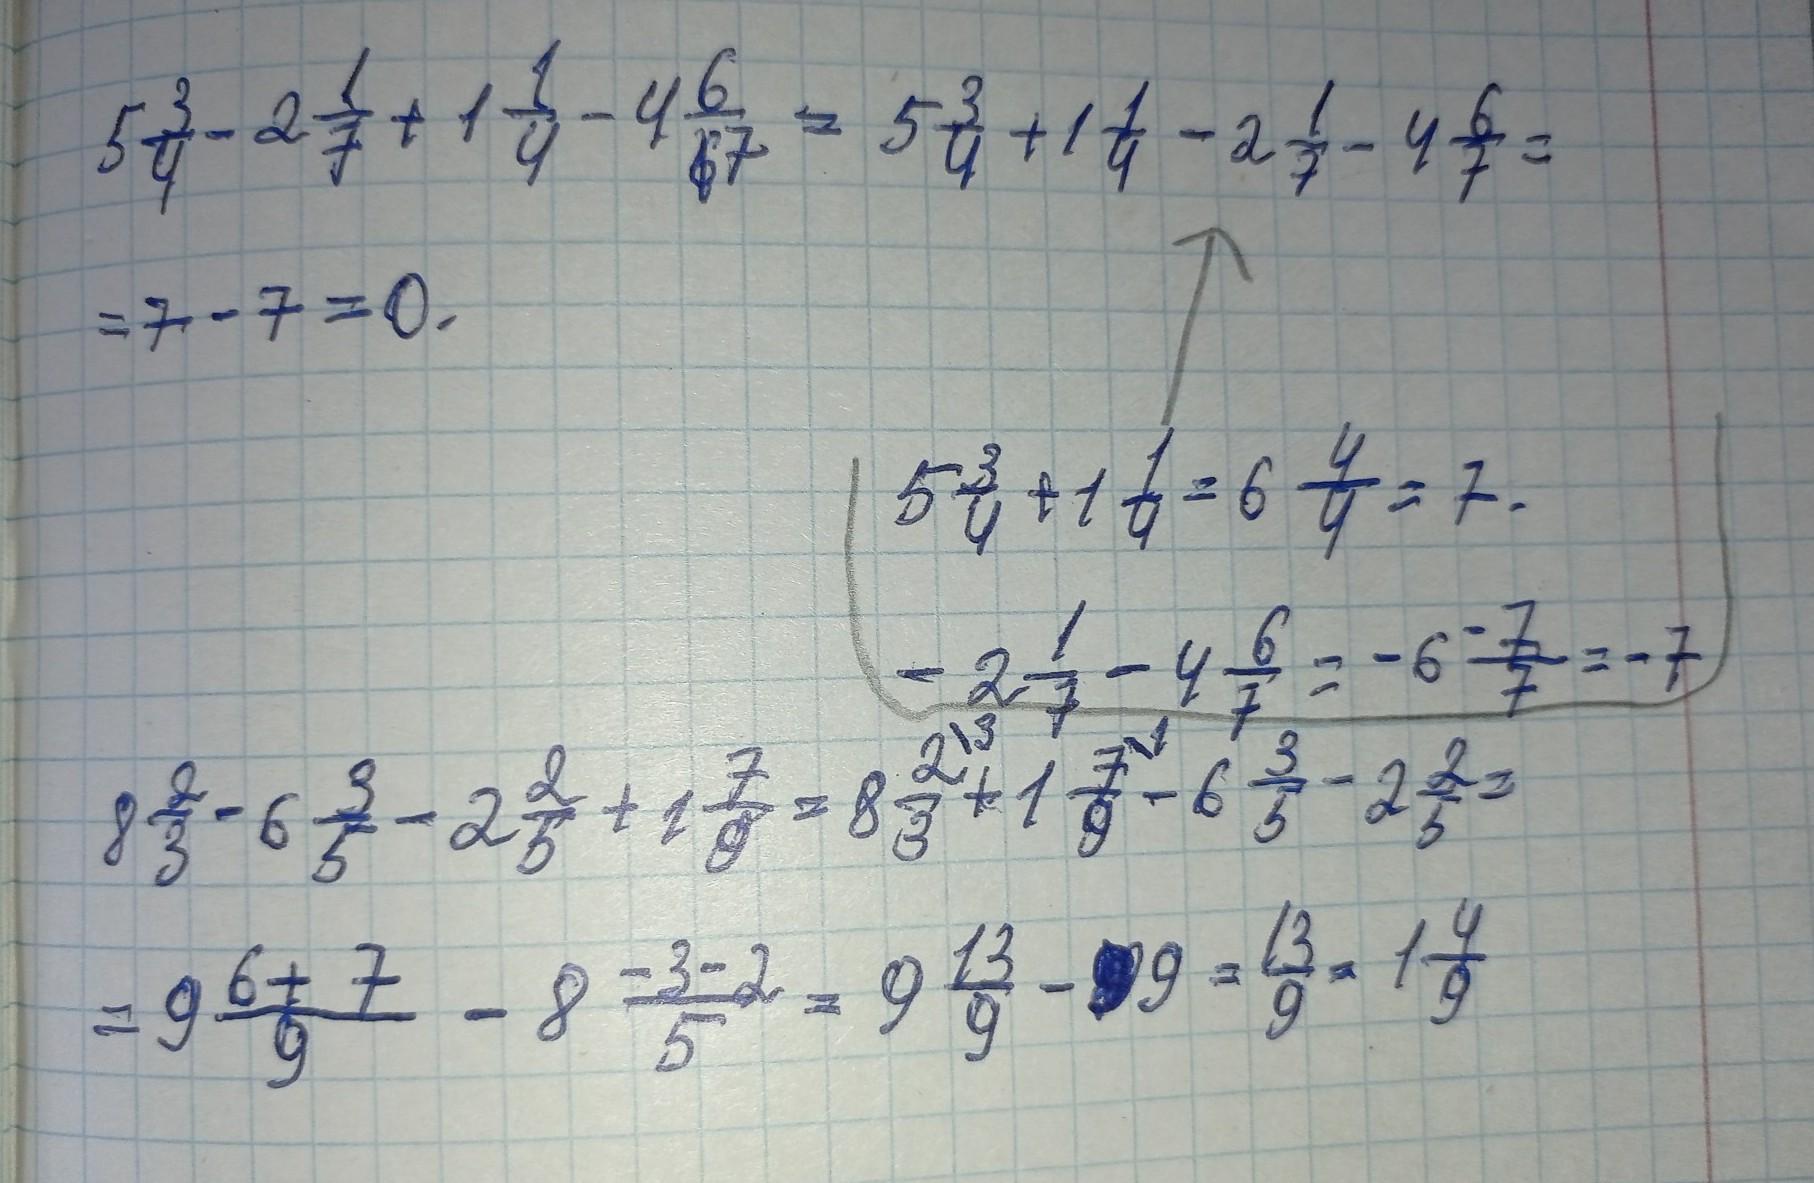 5 3/4 - 2 1/7 + 1 1/4 - 4 6/7 = 5 3/4 + 1 1/4 - 2 1/7 - 4 6/7 =
= 7 - 7 = 0.
5 3/4 + 1 1/4 = 6 4/4 = 7.
- 2 1/7 - 4 6/7 = - 6 -7/7 = - 7
8 2/3 - 6 3/5 - 2 2/5 + 1 7/9 = 8 2\3/3 + 1 7\1/9 - 6 3/5 - 2 2/5 =
= 9 (6 + 7)/9 - 8 (-3-2)/5 = 9 13/9 - 9 = 13/9 = 1 4/9